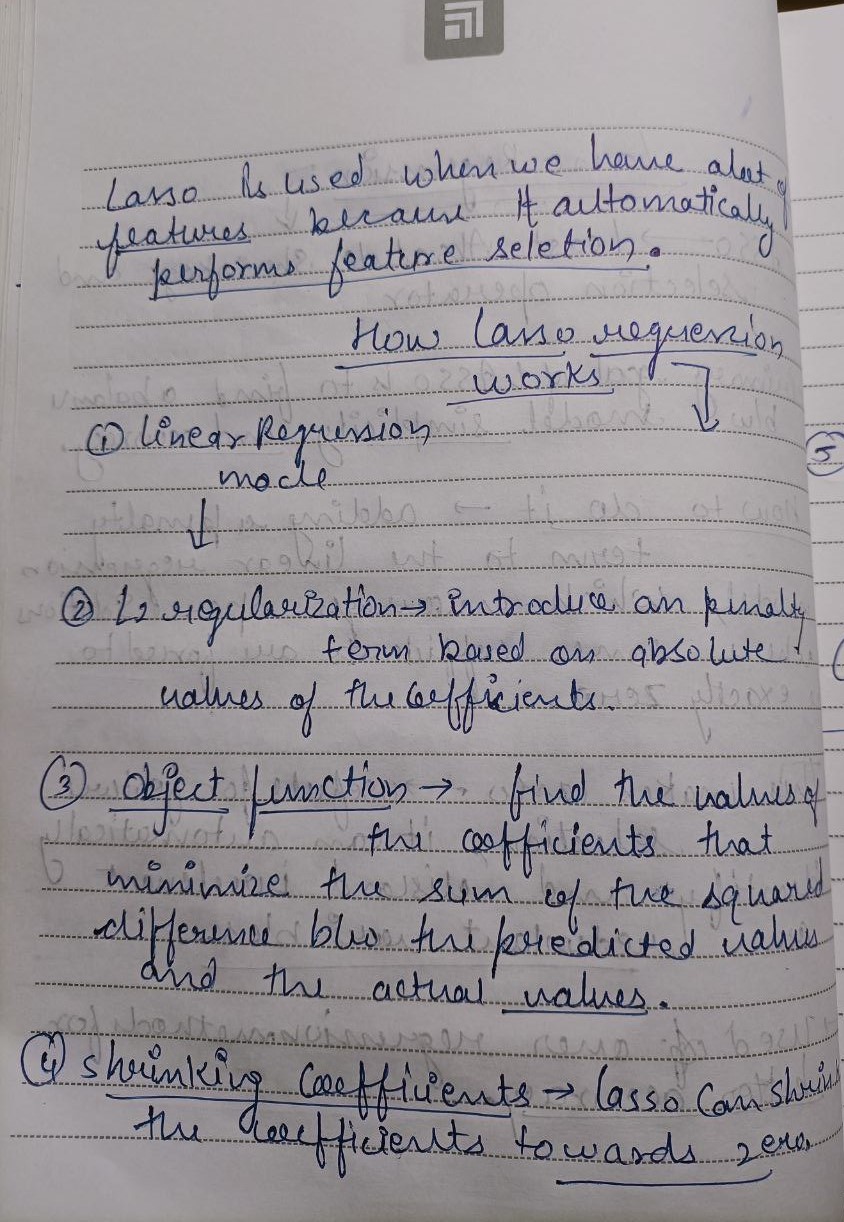 Lasso is used when we have alot of
features because It automatically
performs feature seletion.
How Lasso regression
works
① linear Regression
mode
② L2 regularization → introduce an penalty
term based on absolute
values of the coefficients.
③ Object function → find the values of
the coefficients that
minimize the sum of the squared
difference b/w the predicted values
and the actual values.
④ shrinking Coefficients → lasso Can shrink
the coefficients towards zero,
5